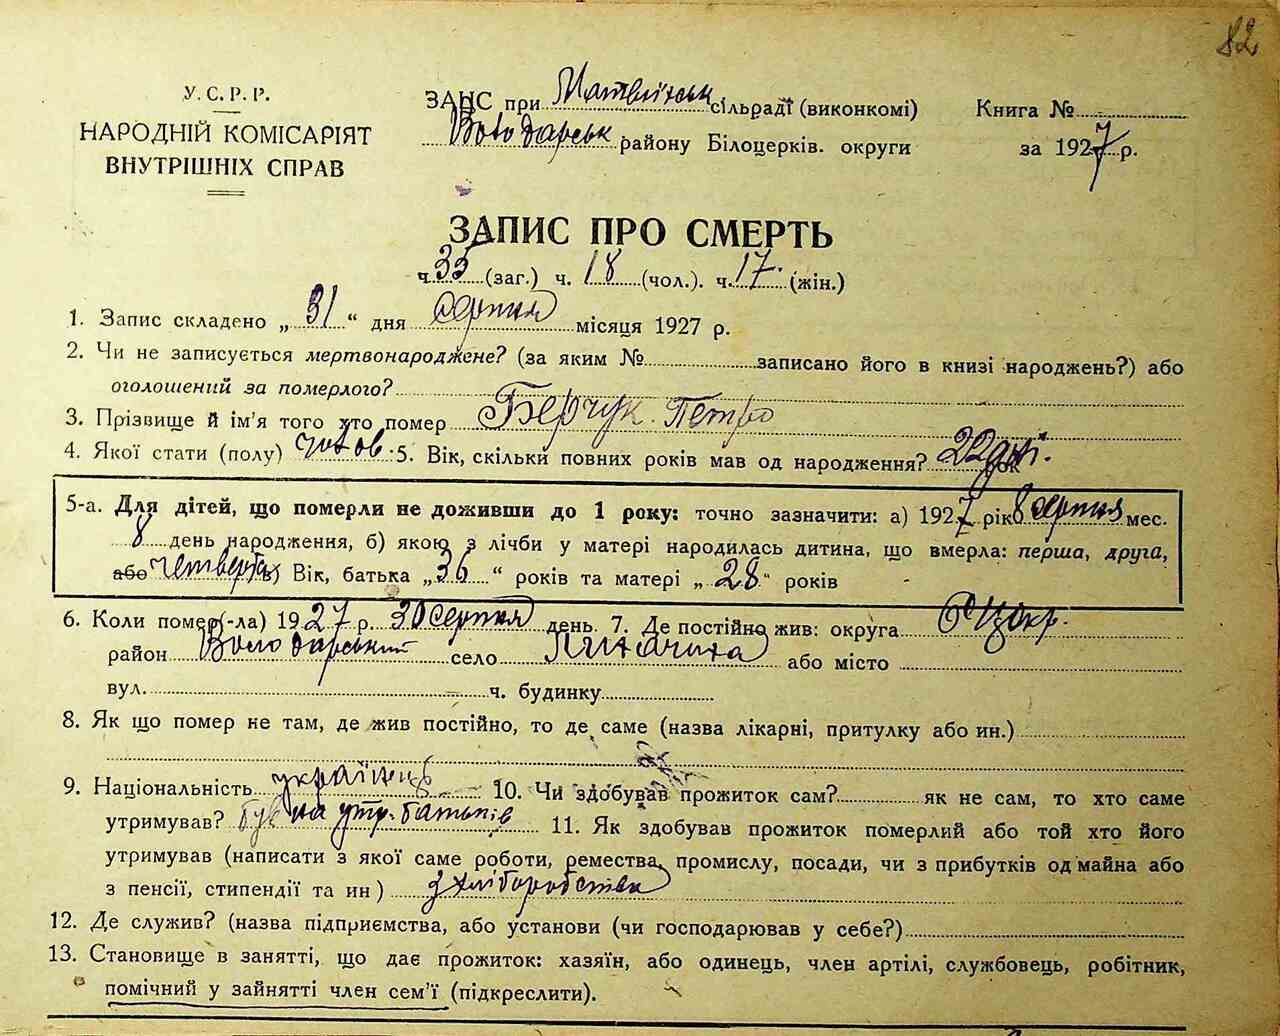 82
У. С. Р. Р.
НАРОДНІЙ КОМІСАРІЯТ
ВНУТРІШНІХ СПРАВ
ЗАНС при Матвіїхськ сільраді (виконкомі)
Володарськ району Білоцерків. округи
Книга №
за 1927 р.
ЗАПИС ПРО СМЕРТЬ
ч. 35 (заг.) ч. 18 (чол.). ч. 17. (жін.)
1. Запис складено „ 31 “ дня серпня місяця 1927 р.
2. Чи не записується мертвонароджене? (за яким № записано його в книзі народжень?) або
оголошений за померлого?
3. Прізвище й ім'я того хто помер Берчук. Петро
4. Якої стати (полу) чолов. 5. Вік, скільки повних років мав од народження? 22 дні.
5-а. Для дітей, що померли не доживши до 1 року: точно зазначити: а) 1927 рік 8 серпня мес.
8 день народження, б) якою з лічби у матері народилась дитина, що вмерла: перша, друга,
або четверта в) Вік, батька „ 36 “ років та матері „ 28 “ років
6. Коли помер(-ла) 1927 р. 30 серпня день 7. Де постійно жив: округа БЦ окр.
район Володарський село або місто
вул. ч. будинку
8. Як що помер не там, де жив постійно, то де саме (назва лікарні, притулку або ин.)
9. Національність українець 10. Чи здобував прожиток сам? як не сам, то хто саме
утримував? був на утр. батьків 11. Як здобував прожиток померлий або той хто його
утримував (написати з якої саме роботи, ремества, промислу, посади, чи з прибутків од майна або
з пенсії, стипендії та ин ) з хліборобства
12. Де служив? (назва підприємства, або установи (чи господарював у себе?)
13. Становище в занятті, що дає прожиток: хазяїн, або одинець, член артілі, службовець, робітник,
помічний у зайнятті член сем'ї (підкреслити).